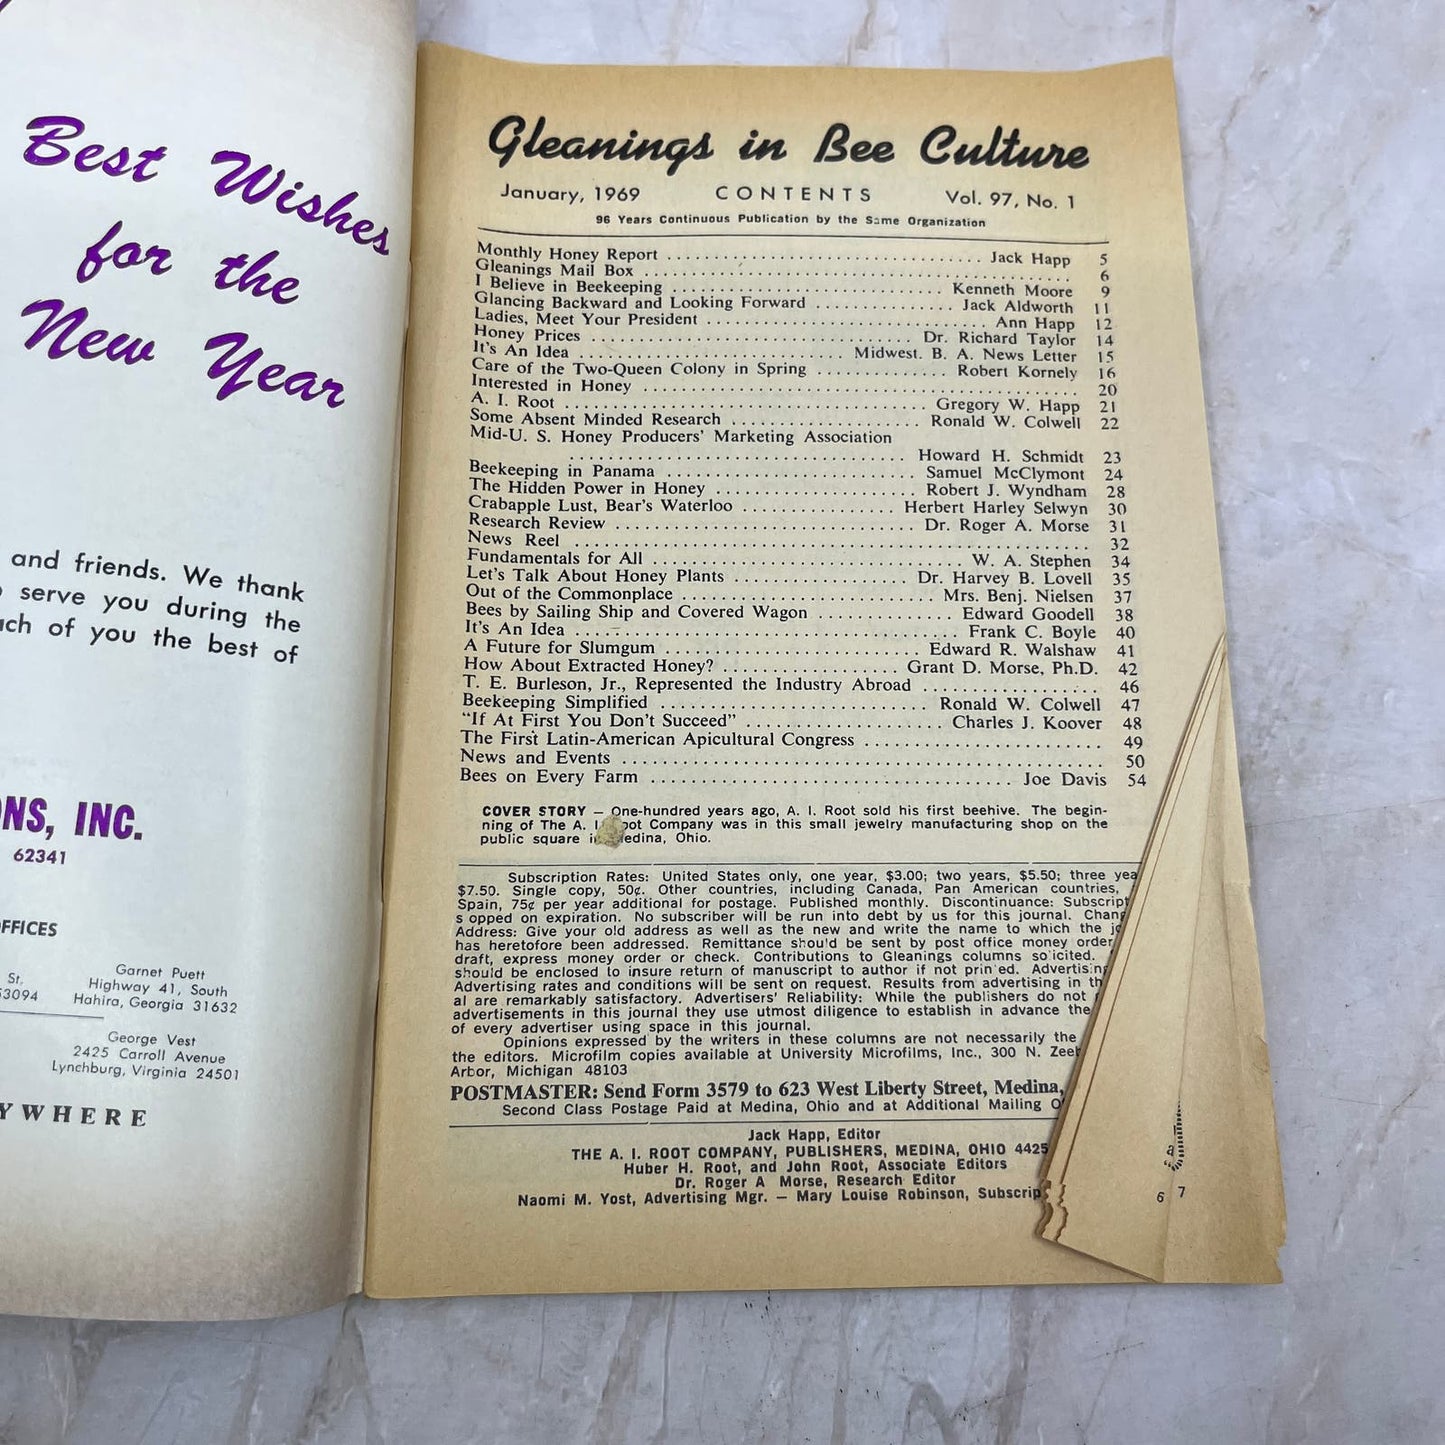 Best Wishes
for the
New Year
and friends. We thank
serve you during the
ch of you the best of
ONS, INC.
62341
FFICES
St.
53094
Garnet Puett
Highway 41, South
Hahira, Georgia 31632
George Vest
2425 Carroll Avenue
Lynchburg, Virginia 24501
YWHERE
Gleanings in Bee Culture
January, 1969 CONTENTS Vol. 97, No. 1
96 Years Continuous Publication by the Same Organization
Monthly Honey Report .......... Jack Happ 5
Gleanings Mail Box .......... 6
I Believe in Beekeeping .......... Kenneth Moore 9
Glancing Backward and Looking Forward .......... Jack Aldworth 11
Ladies, Meet Your President .......... Ann Happ 12
Honey Prices .......... Dr. Richard Taylor 14
It's An Idea .......... Midwest. B. A. News Letter 15
Care of the Two-Queen Colony in Spring .......... Robert Kornely 16
Interested in Honey .......... 20
A. I. Root .......... Gregory W. Happ 21
Some Absent Minded Research .......... Ronald W. Colwell 22
Mid-U. S. Honey Producers' Marketing Association
.......... Howard H. Schmidt 23
Beekeeping in Panama .......... Samuel McClymont 24
The Hidden Power in Honey .......... Robert J. Wyndham 28
Crabapple Lust, Bear's Waterloo .......... Herbert Harley Selwyn 30
Research Review .......... Dr. Roger A. Morse 31
News Reel .......... 32
Fundamentals for All .......... W. A. Stephen 34
Let's Talk About Honey Plants .......... Dr. Harvey B. Lovell 35
Out of the Commonplace .......... Mrs. Benj. Nielsen 37
Bees by Sailing Ship and Covered Wagon .......... Edward Goodell 38
It's An Idea .......... Frank C. Boyle 40
A Future for Slumgum .......... Edward R. Walshaw 41
How About Extracted Honey? .......... Grant D. Morse, Ph.D. 42
T. E. Burleson, Jr., Represented the Industry Abroad .......... 46
Beekeeping Simplified .......... Ronald W. Colwell 47
"If At First You Don't Succeed" .......... Charles J. Koover 48
The First Latin-American Apicultural Congress .......... 49
News and Events .......... 50
Bees on Every Farm .......... Joe Davis 54
COVER STORY — One-hundred years ago, A. I. Root sold his first beehive. The begin-
ning of The A. I. Root Company was in this small jewelry manufacturing shop on the
public square in Medina, Ohio.
Subscription Rates: United States only, one year, $3.00; two years, $5.50; three yea
$7.50. Single copy, 50¢. Other countries, including Canada, Pan American countries,
Spain, 75¢ per year additional for postage. Published monthly. Discontinuance: Subscript
s opped on expiration. No subscriber will be run into debt by us for this journal. Chang
Address: Give your old address as well as the new and write the name to which the jo
has heretofore been addressed. Remittance should be sent by post office money order,
draft, express money order or check. Contributions to Gleanings columns so icited.
should be enclosed to insure return of manuscript to author if not prin ed. Advertising
Advertising rates and conditions will be sent on request. Results from advertising in th
al are remarkably satisfactory. Advertisers' Reliability: While the publishers do not
advertisements in this journal they use utmost diligence to establish in advance the
of every advertiser using space in this journal.
Opinions expressed by the writers in these columns are not necessarily the
the editors. Microfilm copies available at University Microfilms, Inc., 300 N. Zeeb
Arbor, Michigan 48103
POSTMASTER: Send Form 3579 to 623 West Liberty Street, Medina,
Second Class Postage Paid at Medina, Ohio and at Additional Mailing O
Jack Happ, Editor
THE A. I. ROOT COMPANY, PUBLISHERS, MEDINA, OHIO 4425
Huber H. Root, and John Root, Associate Editors
Dr. Roger A Morse, Research Editor
Naomi M. Yost, Advertising Mgr. — Mary Louise Robinson, Subscrip
6 7